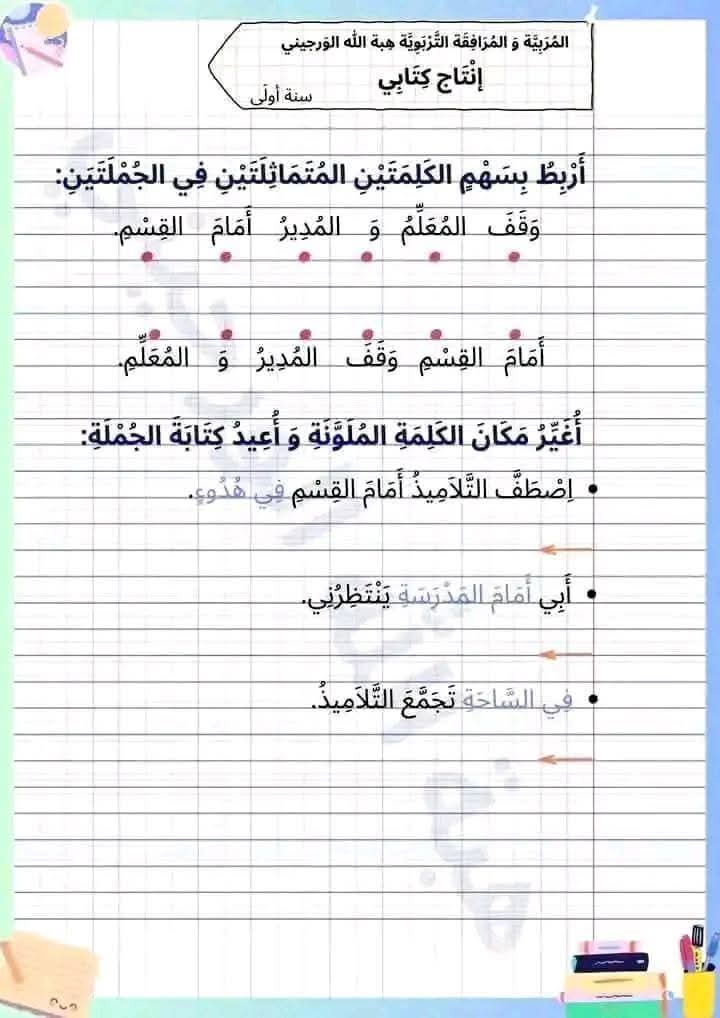 المُرَبِيَّة وَ المُرَافِقَة التَّرْبَوِيَّة هِبة الله الوَرجيني
إِنْتَاج كِتَابِي
سنة أولَى
أَرْبِطُ بِسَهْمٍ الكَلِمَتَيْنِ المُتَمَاثِلَتَيْنِ فِي الجُمْلَتَيَنِ:
وَقَفَ المُعَلِّمُ وَ المُدِيرُ أَمَامَ القِسْمِ.
أَمَامَ القِسْمِ وَقَفَ المُدِيرُ وَ المُعَلِّمِ.
أُغَيِّرُ مَكَانَ الكَلِمَةِ المُلَوَّنَةِ وَ أُعِيدُ كِتَابَةَ الجُمْلَةِ:
• اِصْطَفَّ التَّلَامِيذُ أَمَامَ القِسْمِ فِي هُدُوءٍ.
• أَبِي أَمَامَ المَدْرَسَةِ يَنْتَظِرُنِي.
• فِي السَّاحَةِ تَجَمَّعَ التَّلَامِيذُ.
هبة الله الورجيني